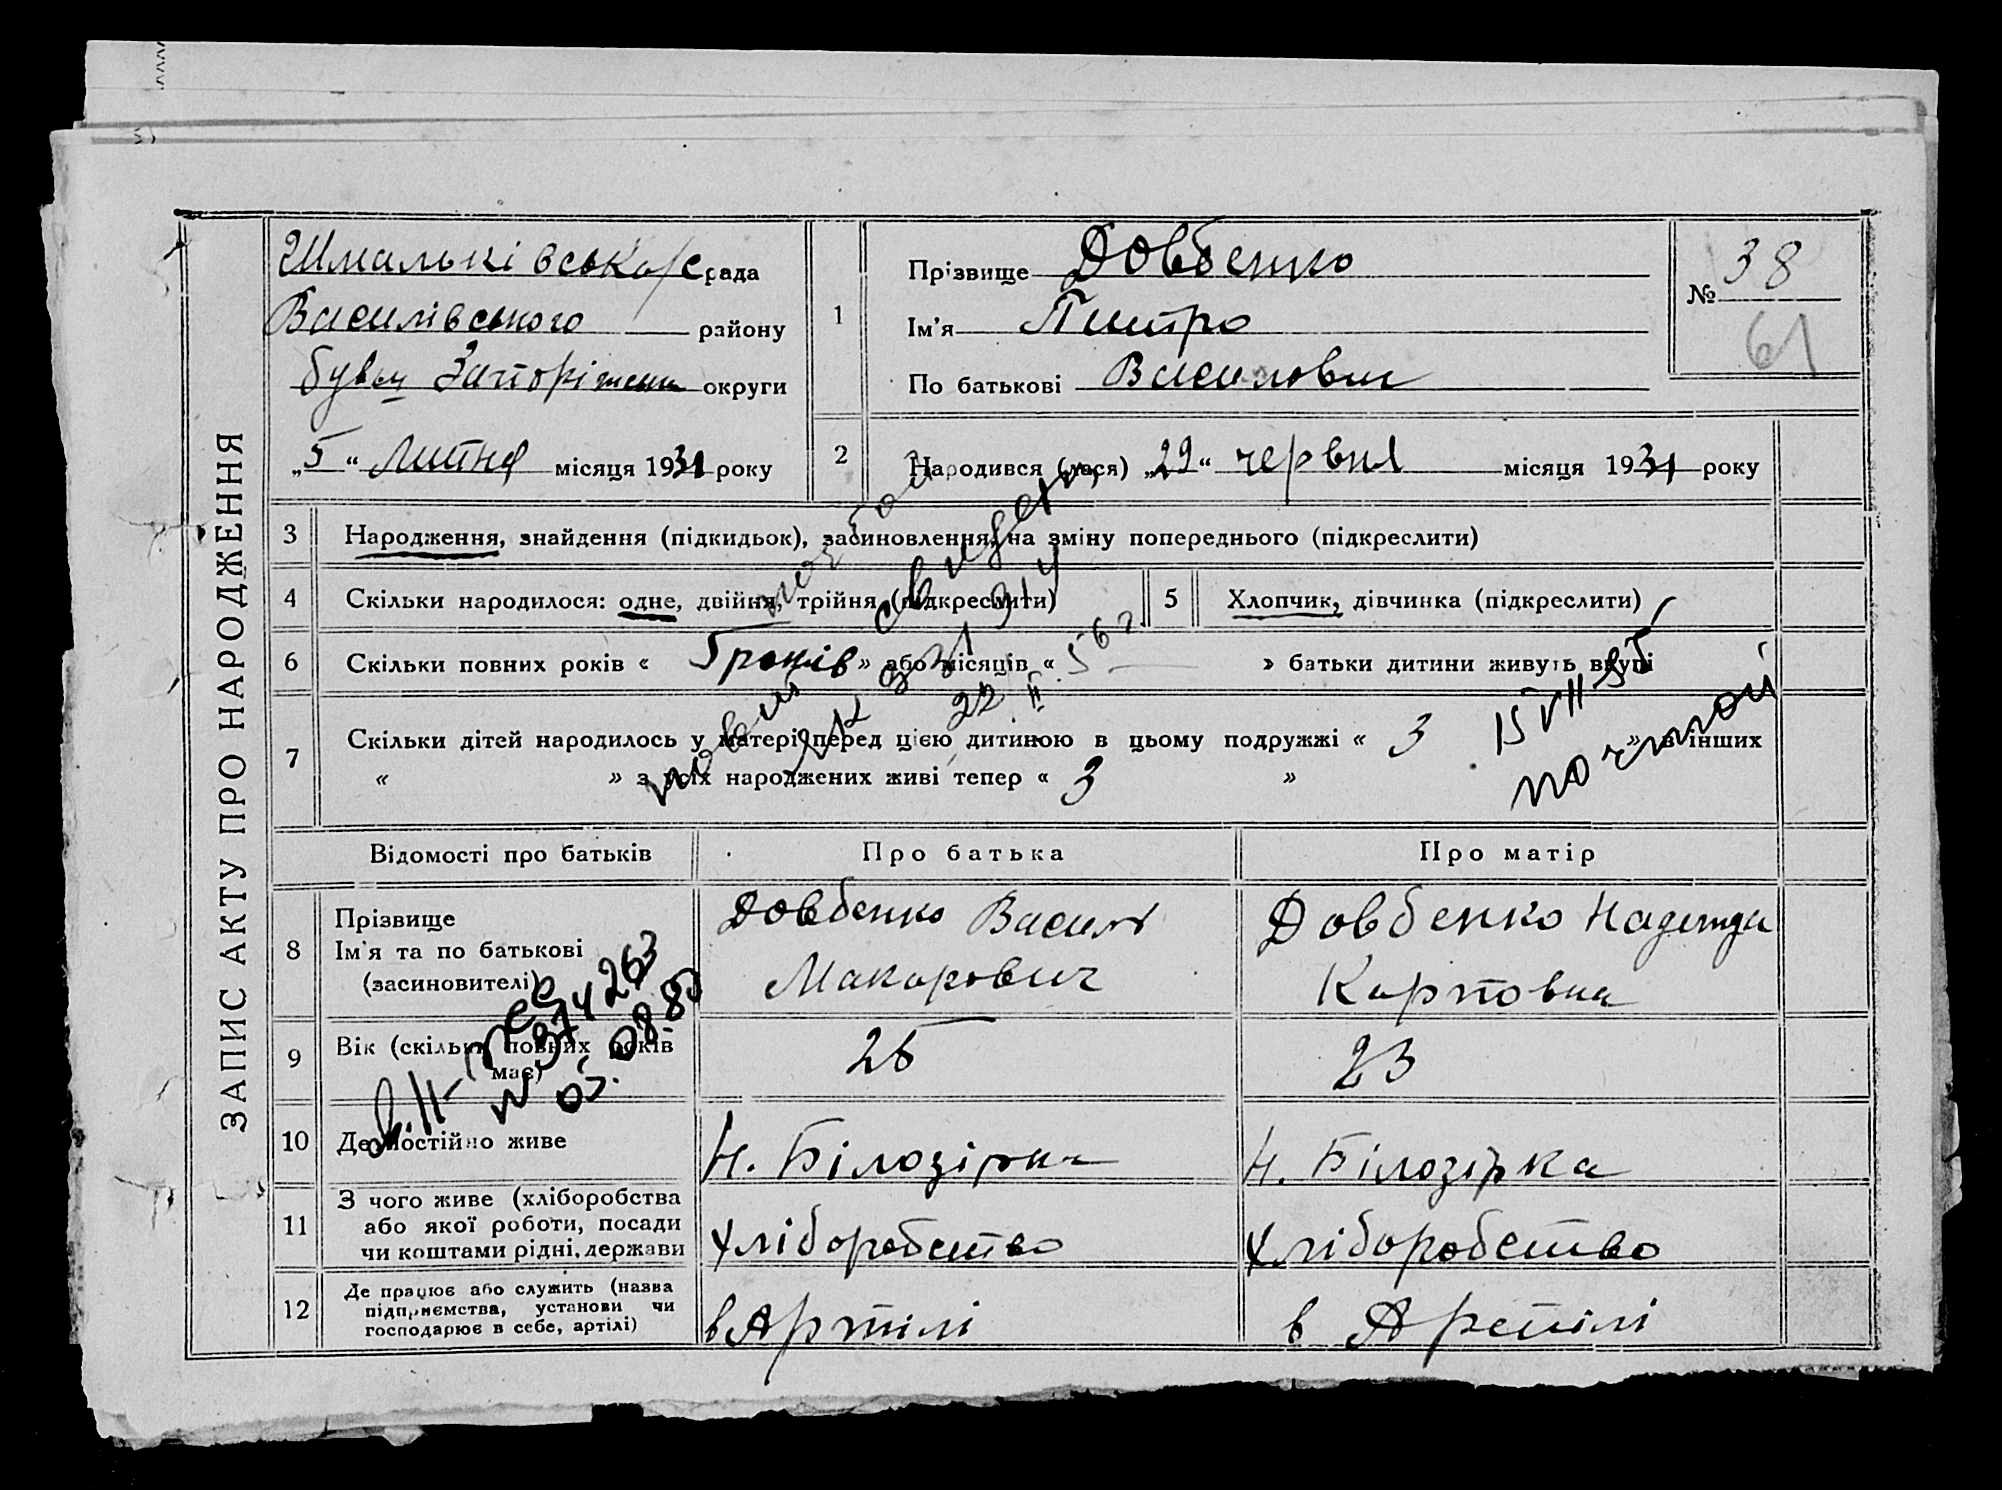 ЗАПИС АКТУ ПРО НАРОДЖЕННЯ
Шмальківська с/рада
Василівського району
бувш Запоріжськ округи
„5“ Липня місяця 1931 року
1
Прізвище Довбенко
Ім'я Питро
По батькові Василович
№ 38
61
2
Народився (лася) „29“ червня місяця 1931 року
3 Народження, знайдення (підкидьок), засиновлення, на зміну попереднього (підкреслити)
4 Скільки народилося: одне, двійня, трійня (підкреслити)
5 Хлопчик, дівчинка (підкреслити)
6 Скільки повних років « 5 років » або місяців « — » батьки дитини живуть вкупі
7 Скільки дітей народилось у матері перед цією дитиною в цьому подружжі « 3 » в інших
« » з усіх народжених живі тепер « 3 »
22 II 56 г
15 VII 85
Відомості про батьків
Про батька
Про матір
8 Прізвище
Ім'я та по батькові
(засиновителі)
Довбенко Василь
Макарович
Довбенко Надежда
Карповна
9 Вік (скільки повних років
має)
26
23
10 Де постійно живе
Н. Білозірка
Н. Білозірка
11 З чого живе (хліборобства
або якої роботи, посади
чи коштами рідні, держави
хліборобство
хліборобство
12 Де працює або служить (назва
підприємства, установи чи
господарює в себе, артілі)
в Артілі
в Артілі
№ 974263
05.08.85